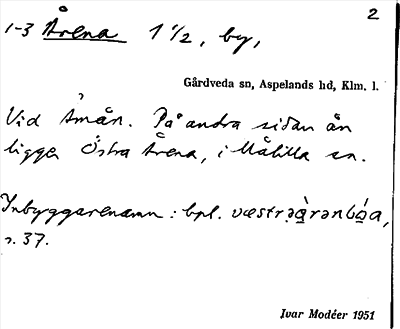 2
1-3 Årena 1 1/2, by,
Gårdveda sn, Aspelands hd, Klm. l.
Vid Åmån. På andra sidan ån
ligger Östra Årena, i Målilla sn.
Inbyggarenamn: bpl. væstrə
s. 37.
Ivar Modéer 1951